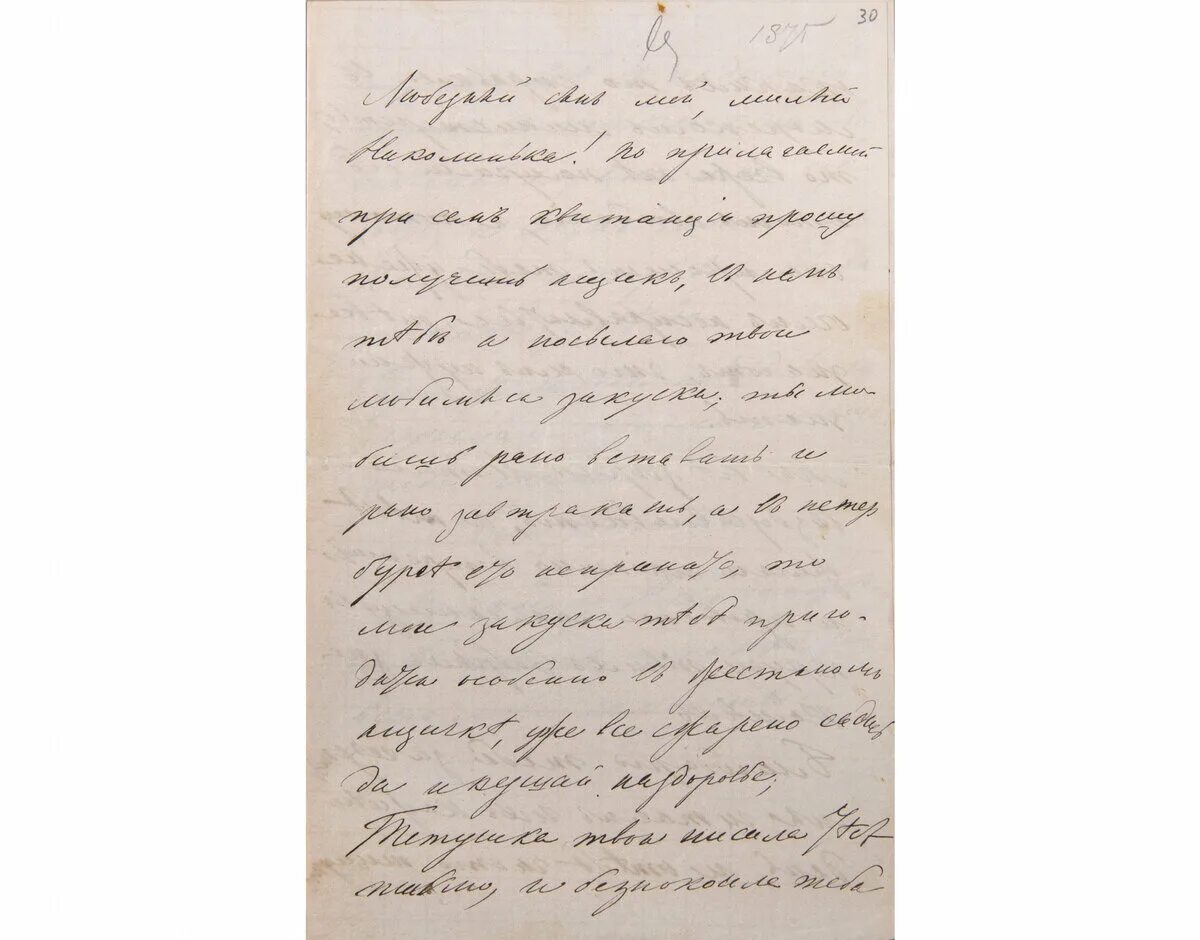 30
1875
Любезный сынъ мой, милый
Николинька! по прилагаемой
при семъ квитанціи прошу
получить ящикъ, въ немъ
тѣбѣ я посылаю твои
любимыя закуски; ты лю-
бишь рано вставать и
рано завтракать, а въ петер
бургѣ это непринято, то
мои закуски тѣбѣ приго-
дятся особенно въ жестяномъ
ящичкѣ, уже все жарено садись
да и кушай наздоровье;
Тетушка твоя писала тѣбѣ
письмо, и безпокоила тебя